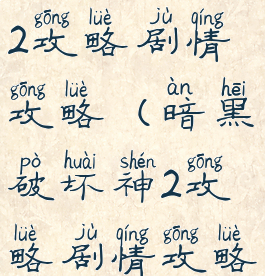 gōng lüè jù qíng
2攻略剧情
gōng lüè àn hēi
攻略(暗黑
pò huài shén gōng
破坏神2攻
lüè jù qíng gōng lüè
略剧情攻略